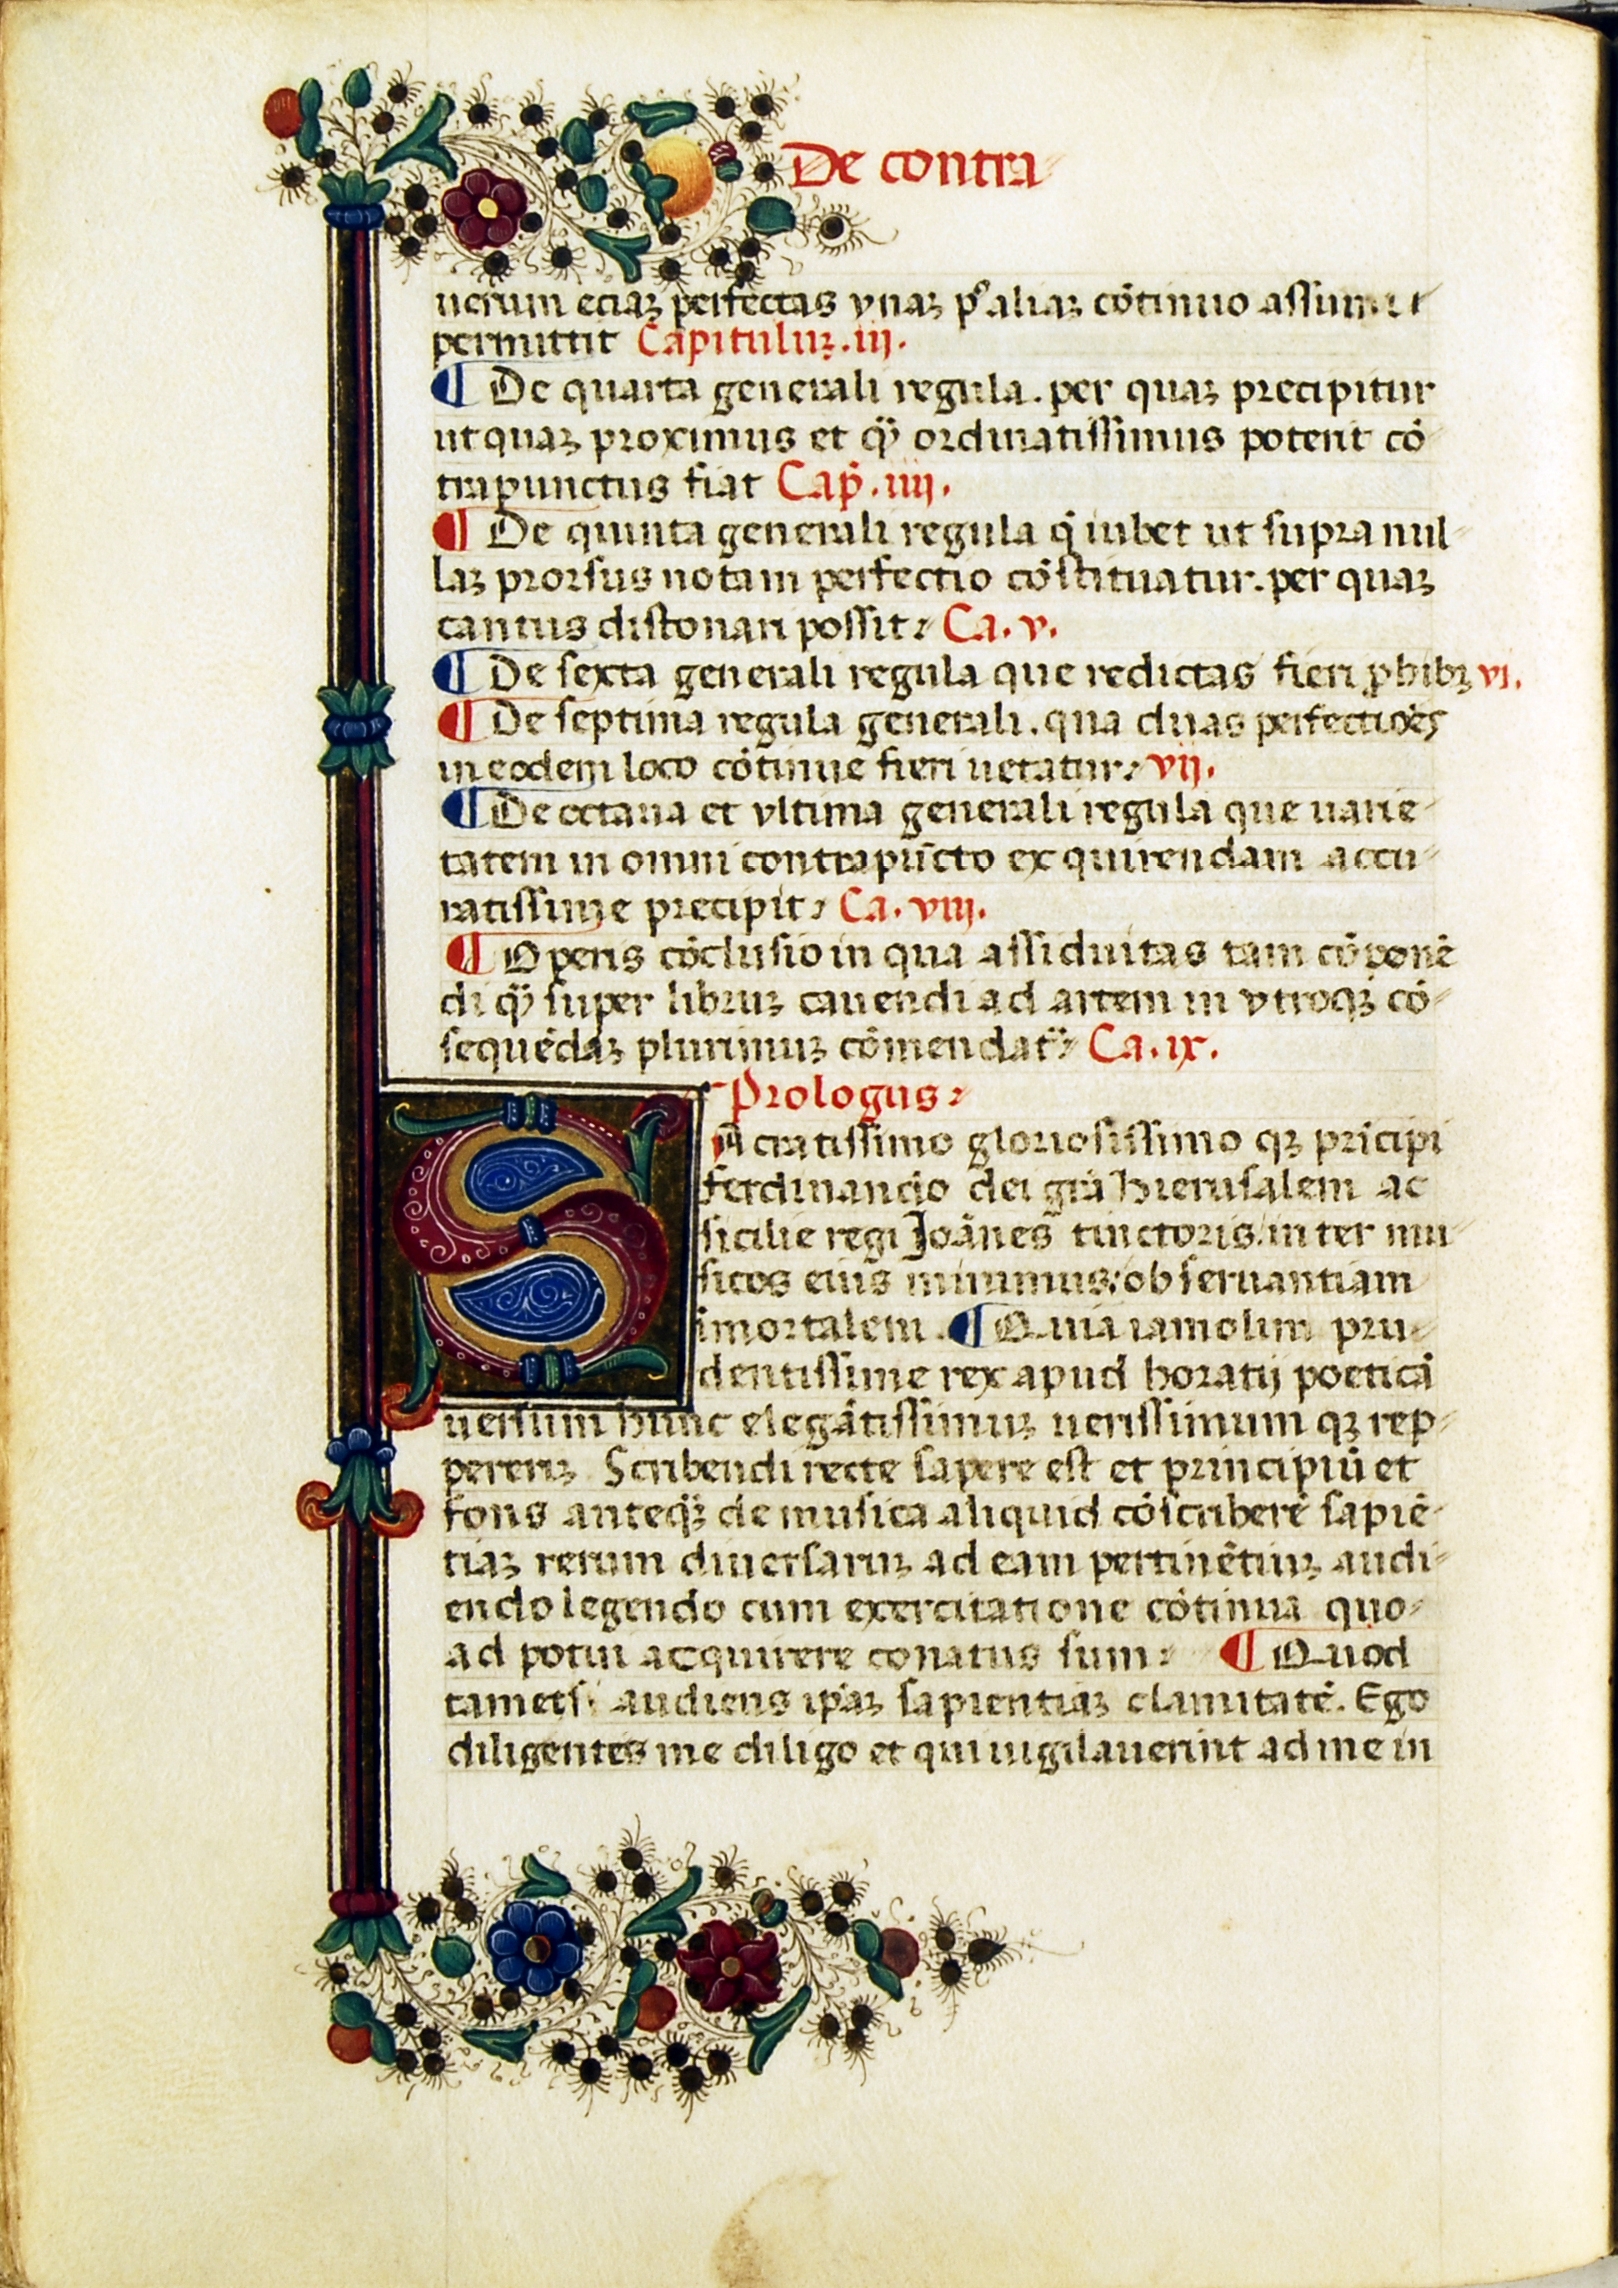 De contra
uerum eciaꝫ perfectas vnaꝫ pꝰ aliaꝫ cōtinuo assumi
permittit Capituluꝫ .iij.
¶ De quarta generali regula . per quaꝫ precipitur
ut quaꝫ proximus et qͫ ordinatissimus poterit cō
trapunctus fiat Cap̄ .iiij.
¶ De quinta generali regula q̇ iubet ut supra nul
laꝫ prorsus notam perfectio cōstituatur . per quaꝫ
cantus distonari possit : Ca . v .
¶ De sexta generali regula que redictas fieri ꝓhibꝫ vi .
¶ De septima regula generali . qua duas perfectiões
in eodem loco cōtinue fieri uetatur : vij .
¶ De octaua et vltima generali regula que uarie
tatem in omni contrapūcto exquirendam accu
ratissime precipit : Ca . viij .
¶ Operis cōclusio in qua assiduitas tam cōponē
di qͫ super libruꝫ canendi ad artem in vtroqꝫ cō
sequēdaꝫ plurimuꝫ cōmendat᷑ : Ca . ix .
Prologus :
S Acratissimo gloriosissimo qꝫ prīcipi
ferdinancio dei grā hierusalem ac
sicilie regi Joānes tinctoris . inter mu
sicos eius minimus : obseruantiam
imortalem . ¶ Quia iamolim pru
dentissime rex apud horatij poeticā
uersum hunc elegātissimuꝫ uerissimum qꝫ rep
pereriꝫ Scribendi recte sapere est et principiū et
fons anteqͫ de musica aliquid cōscriberē sapiē
tiaꝫ rerum diuersaruꝫ ad eam pertinētiuꝫ audi
endo legendo cum exercitatione cōtinua quo
ad potui acquirere conatus sum : ¶ Quod
tametsi audiens ip̄aꝫ sapientiaꝫ clamitatē . Ego
diligentes me diligo et qui uigilauerint ad me in